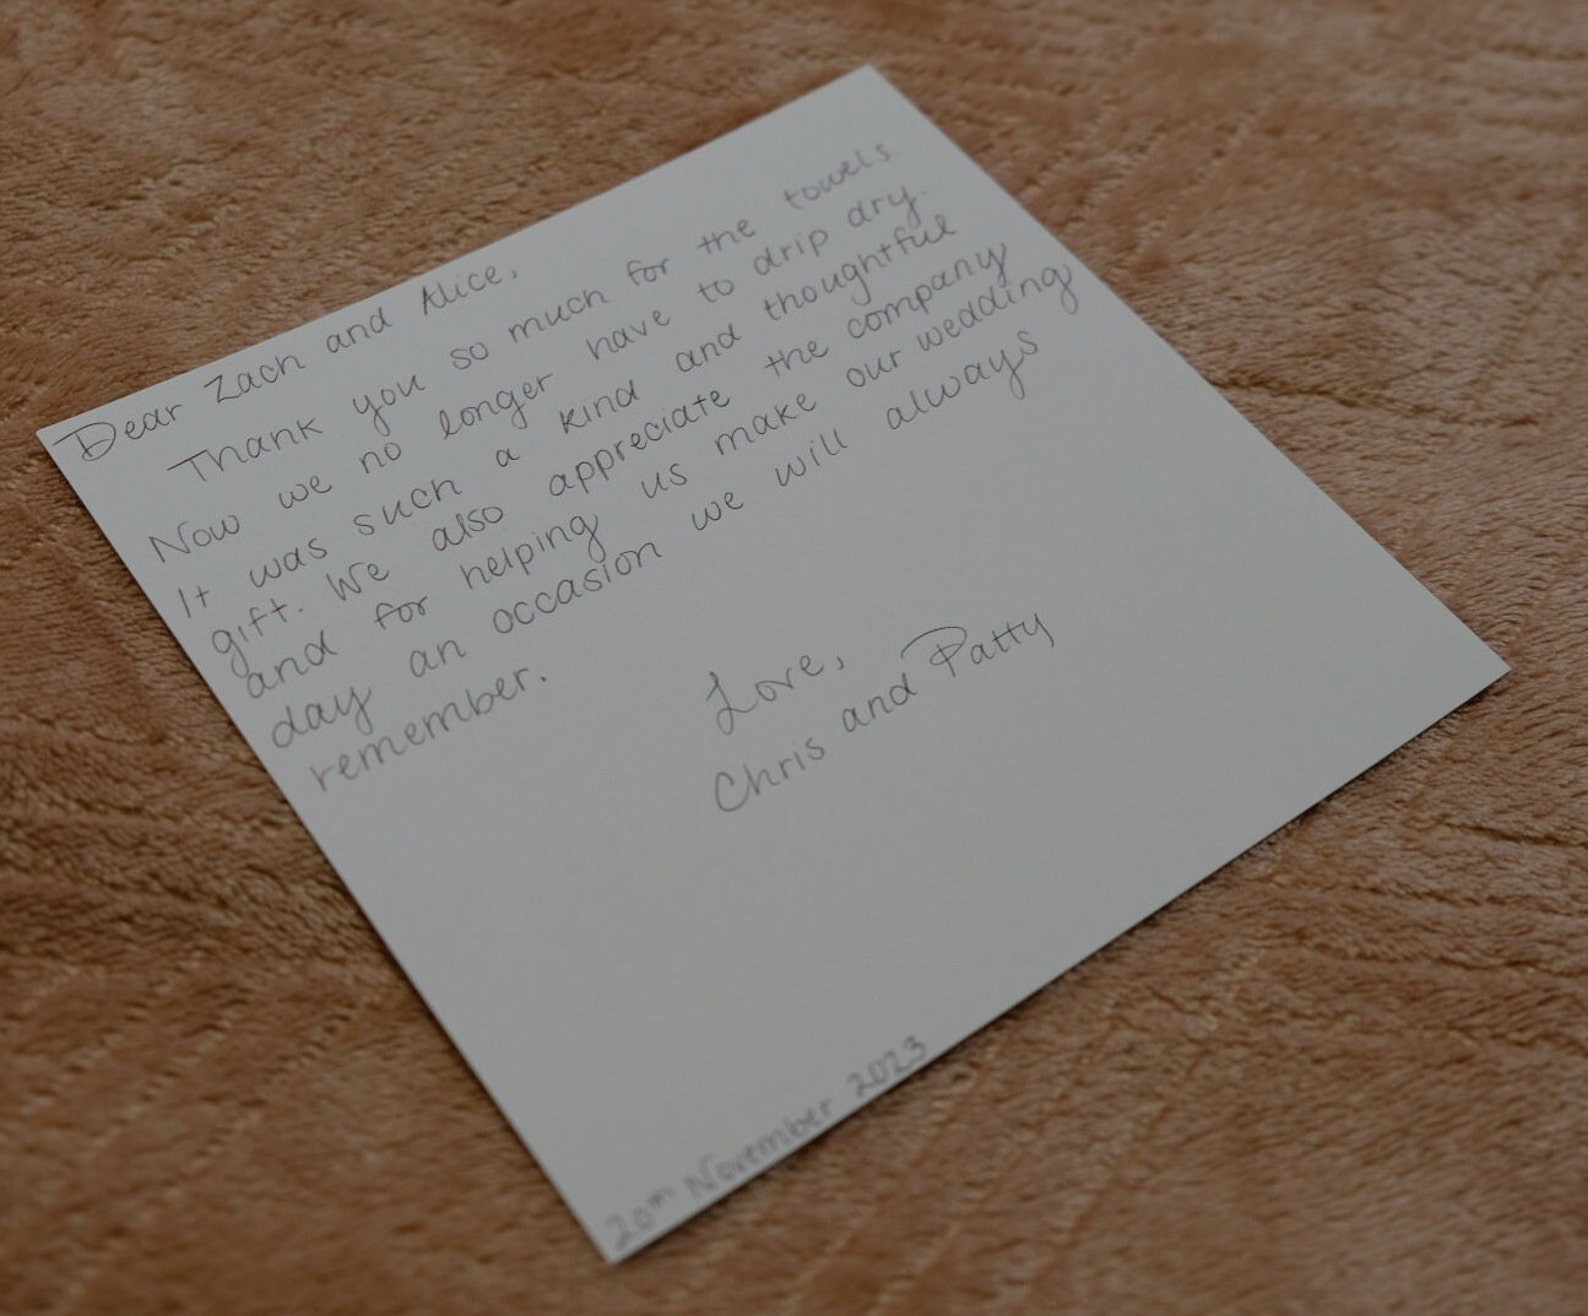 Dear Zach and Alice,
Thank you so much for the towels.
Now we no longer have to drip dry.
It was such a kind and thoughtful
gift. We also appreciate the company
and for helping us make our wedding
day an occasion we will always
remember.
Love,
Chris and Patty
20th November 2023